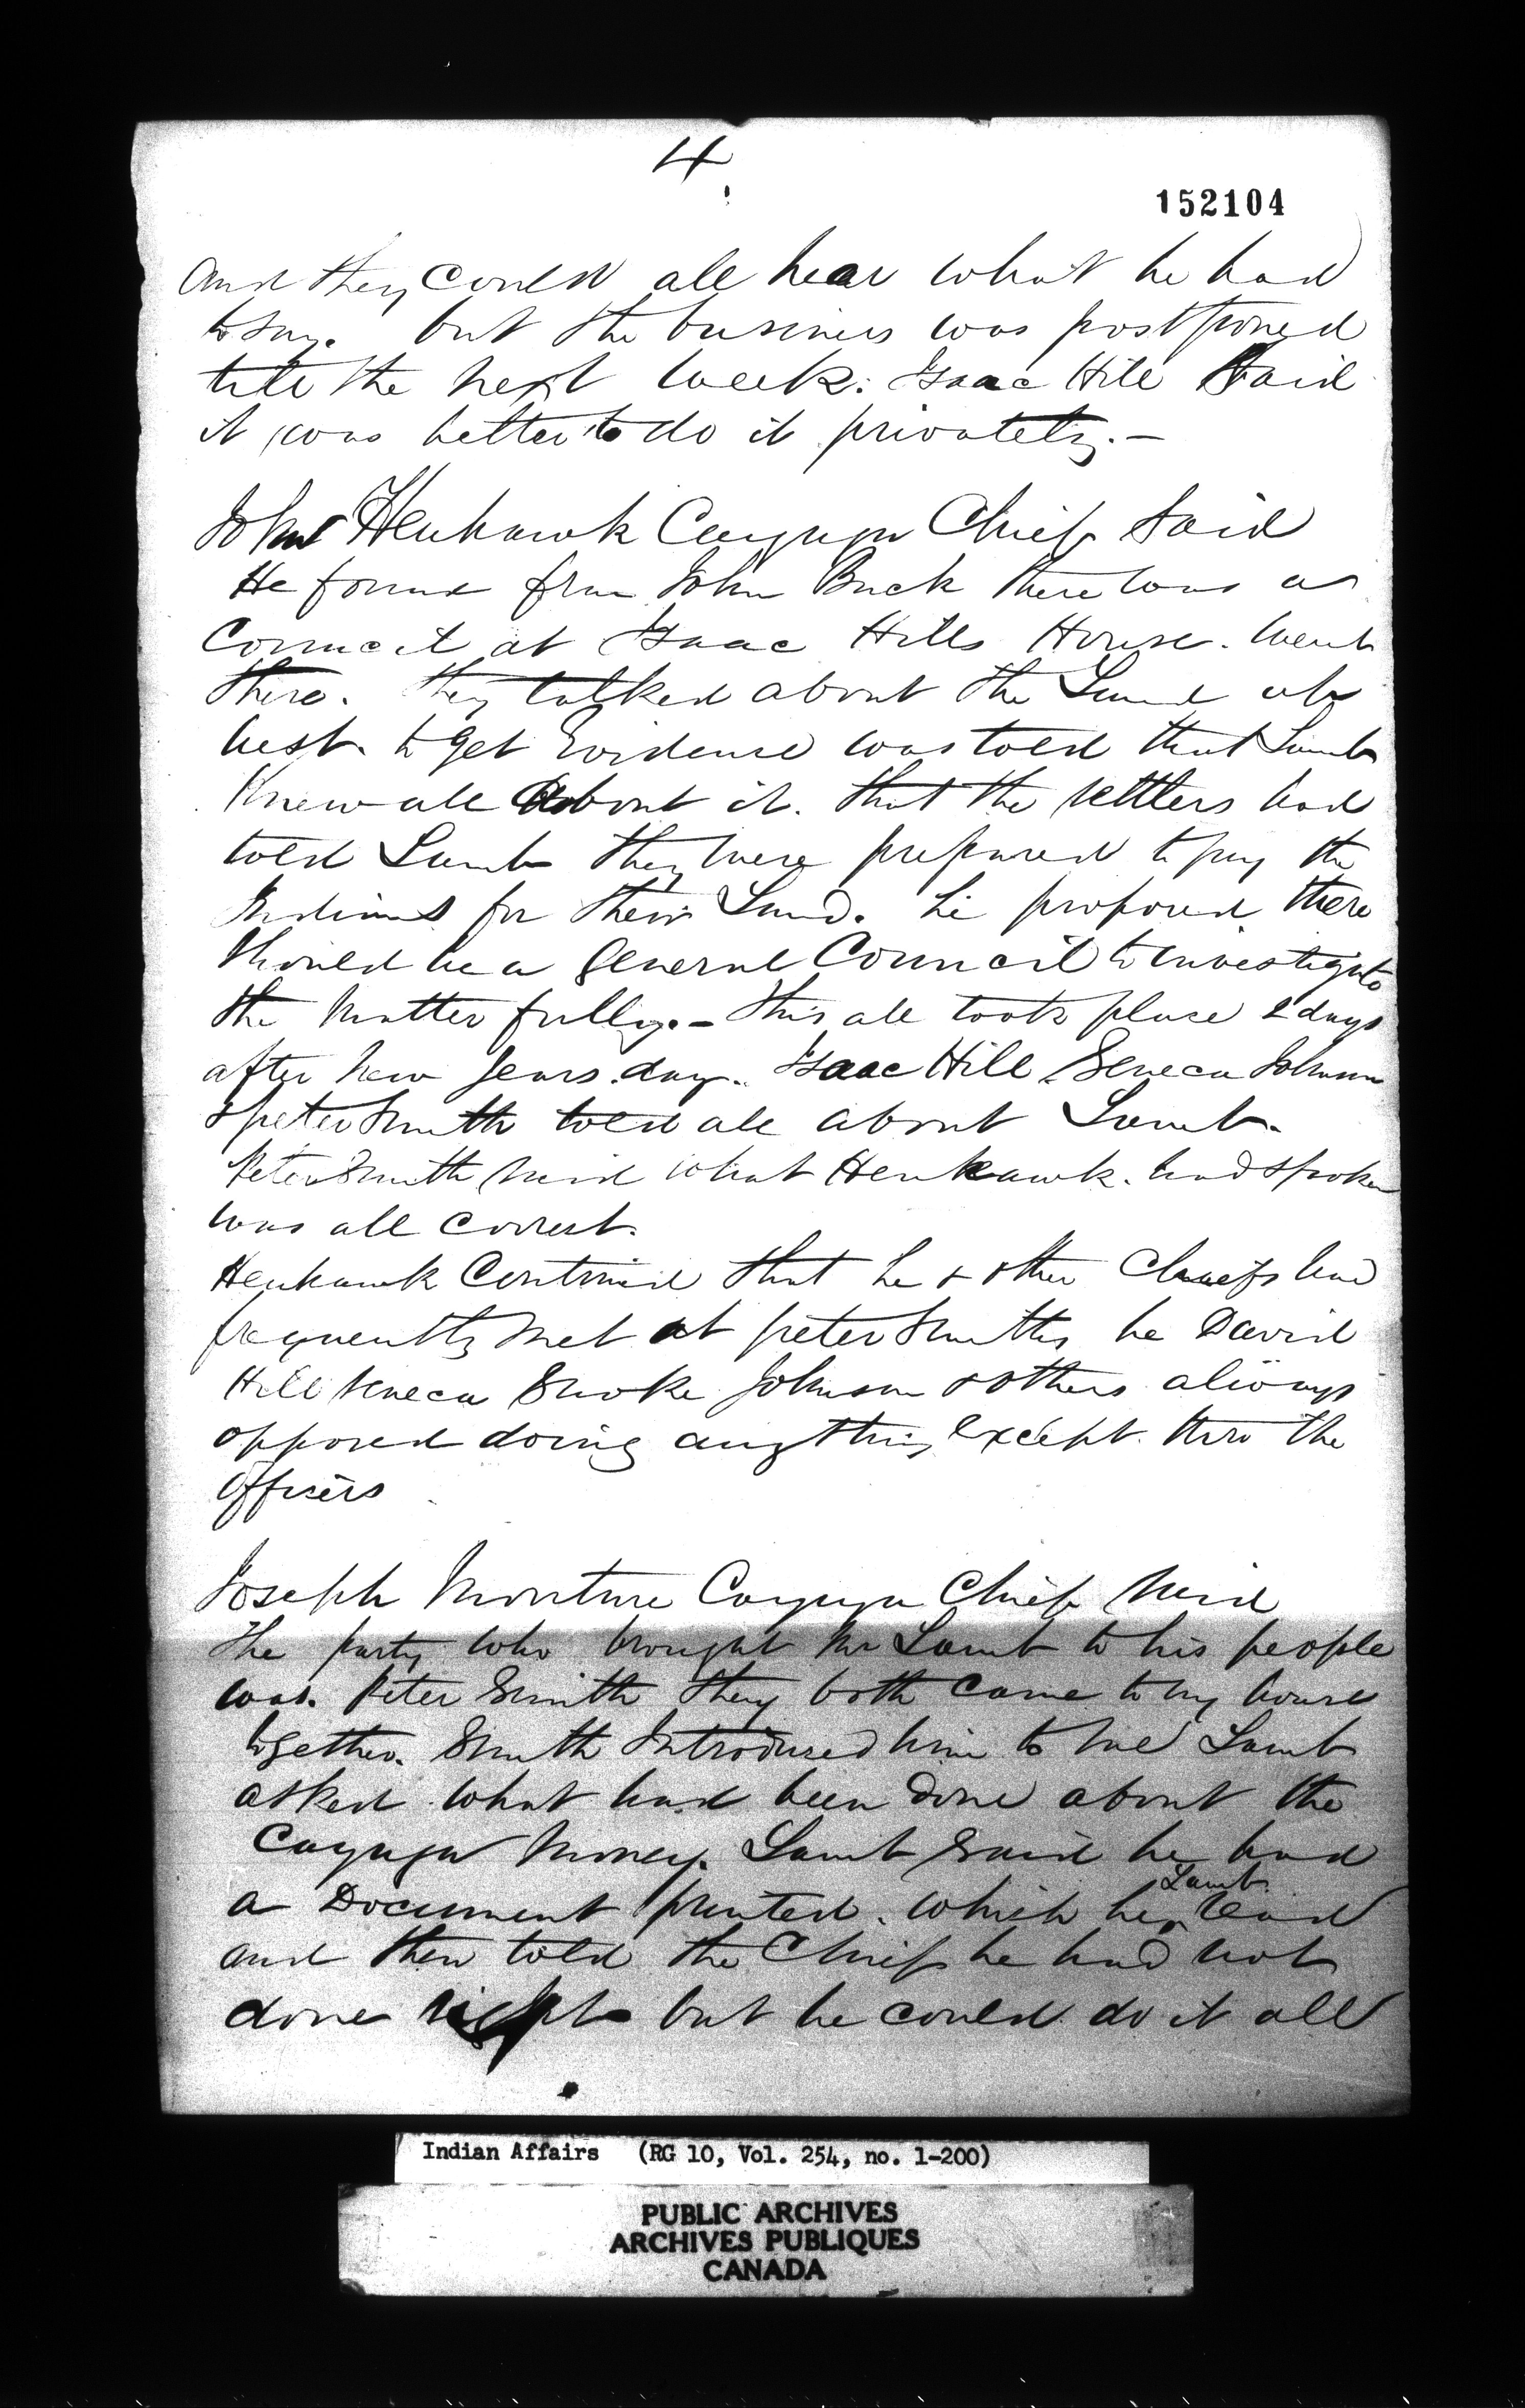 4
152104
and they could all hear what he had
to say. but the business was postponed
till the next week. Isaac Hill Said
it was better to do it privately. —
John Henhawk Cayuga Chief Said
He found from John Buck there was a
Council at Isaac Hills House. went
there. they talked about the Land
best to get Evidence was told that Lamb
Knew all about it. that the settlers had
told Lamb they were prepared to pay the
Indians for their Land. he proposed there
should be a General Council to investigate
the matter fully. — this all took place 2 days
after New Years day. Isaac Hill Seneca Johnson
& peter Smith told all about Lamb.
Peter Smith said what Henhawk had spoken
was all correct.
Henhawk Continued that he & other Chiefs had
frequently met at peter Smiths he David
Hill Seneca Smoke Johnson & others always
opposed doing anything except thro the
officers
Joseph Monture Cayuga Chief said
The party who brought Mr Lamb to his people
was Peter Smith they both came to my house
together. Smith Introduced him to me Lamb
asked what had been done about the
Cayuga Money. Lamb said he had
a Document printed. which he Lamb read
and then told the Chiefs he had not
done right but he could do it all
Indian Affairs (RG 10, Vol. 254, no. 1-200)
PUBLIC ARCHIVES
ARCHIVES PUBLIQUES
CANADA